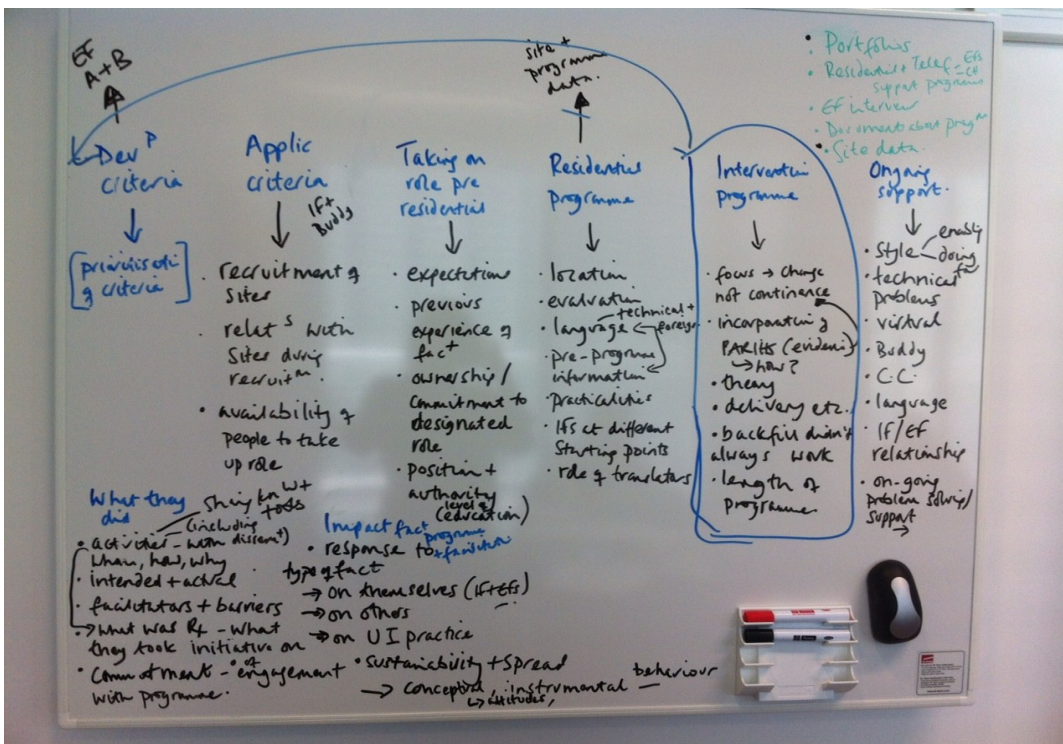 EF
A+B
site +
programme
data.
• Portfolios
• Residential + Telef - EFs
support programme
• EF interview
• Document about progm
• Site data.
Devp
criteria
[prioritisati
of criteria]
Applic
criteria
IF+
Buddy
• recruitment of
sites
• relats with
sites during
recruitm
• availability of
people to take
up role
Taking on
role pre
residential
• expectations
• previous
experience of
fact
• ownership /
commitment to
designated
role
• position +
authority
level of
(education)
Residential
programme
• location
• evaluation
• language
technical +
foreign
• pre-programme
information
• practicalities
• IFs at different
starting points
• role of translators
Intervention
programme
• focus → change
not continence
• incorporating
PARIHS (evidence)
→ how?
• theory
• delivery etc.
• backfill didn't
always work
• length of
programme
Ongoing
support.
• Style
enabling
doing for
• technical
problems
• virtual
• Buddy
• C.C.
• language
• IF/EF
relationship
• on-going
problem solving/
support
→
What they
did
• activities - with
(including
whom, how, why
• intended + actual
• facilitators + barriers
→ what was Rx - what
they took initiative on
• Commitment - engagement
of
with programme.
Impact fact programme
+ facilitation
• response to
type of fact
→ on themselves (IF+EFs)
→ on others
→ on UI practice
• Sustainability + Spread
→ conceptual, instrumental — behaviour
↳ attitudes,